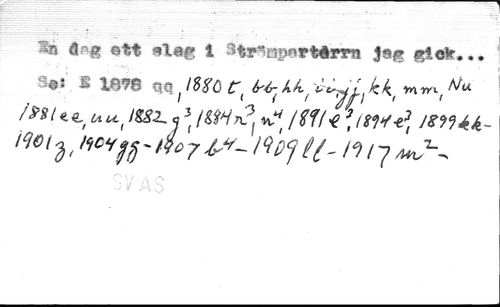 En dag ett slag i Strömpartärrn jag gick...
Se: E 1878 qq, 1880 t, bb, hh, ii, jj, kk, mm, Nu
1881 ee, uu, 1882 g³, 1884 n³, n⁴, 1891 e³, 1894 e³, 1899 kk-
1901 z, 1904 gg - 1907 b⁴ - 1909 ll - 1917 m² -
SVAS